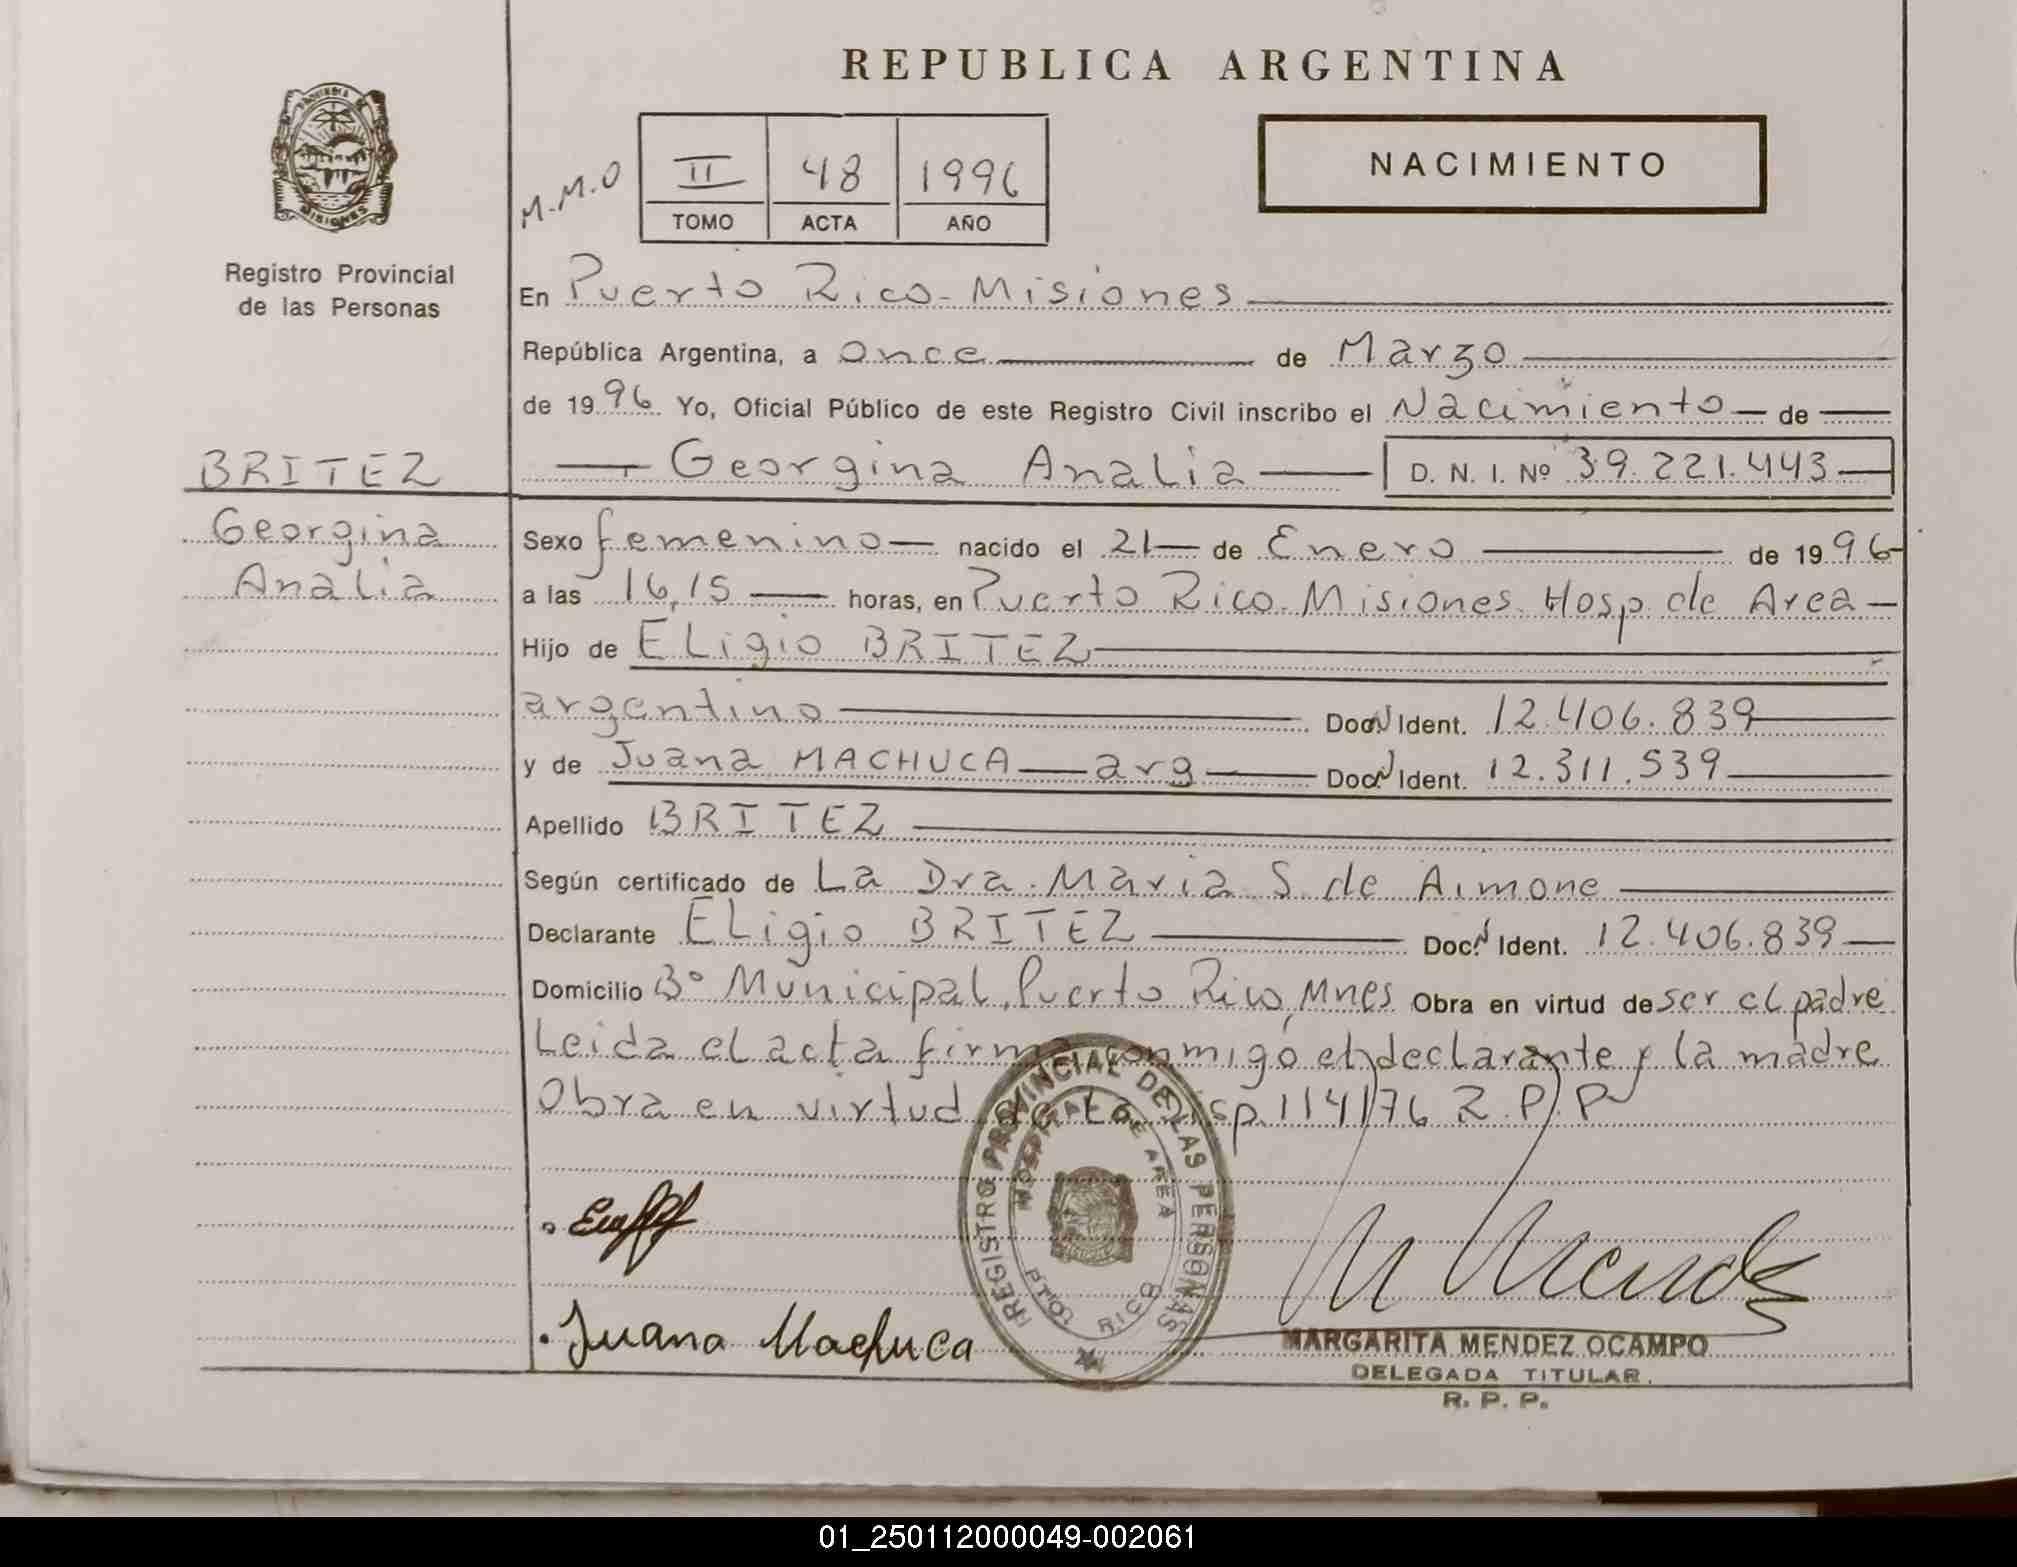 REPUBLICA ARGENTINA
PROVINCIA DE
MISIONES
Registro Provincial
de las Personas
M.M.O
II 48 1996
TOMO ACTA AÑO
NACIMIENTO
En Puerto Rico - Misiones
República Argentina, a once de Marzo
de 1996 Yo, Oficial Público de este Registro Civil inscribo el Nacimiento de
BRITEZ
Georgina Analia D. N. I. Nº 39.221.443
Georgina
Analia
Sexo femenino nacido el 21 de Enero de 1996
a las 16,15 horas, en Puerto Rico. Misiones. Hosp. de Area
Hijo de ELigio BRITEZ
argentino Doc. N Ident. 12.406.839
y de Juana MACHUCA arg Doc. N Ident. 12.311.539
Apellido BRITEZ
Según certificado de La Dra. Maria S. de Aimone
Declarante ELigio BRITEZ Doc. N Ident. 12.406.839
Domicilio Bº Municipal, Puerto Rico, Mnes Obra en virtud de ser el padre
Leida el acta firma conmigo el declarante y la madre
Obra en virtud de La Disp. 114/76 R.P.P
REGISTRO PROVINCIAL DE LAS PERSONAS
HOSPITAL DE AREA
PTO. RICO
Juana Machuca
MARGARITA MENDEZ OCAMPO
DELEGADA TITULAR.
R. P. P.
01_250112000049-002061